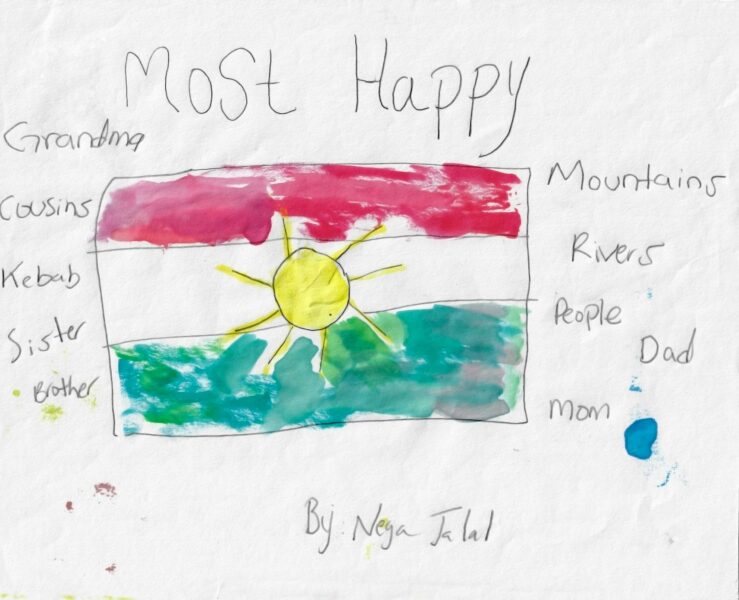 Most Happy
Grandma
Cousins
Kebab
Sister
Brother
Mountains
Rivers
People
Dad
Mom
By: Nega Jalal